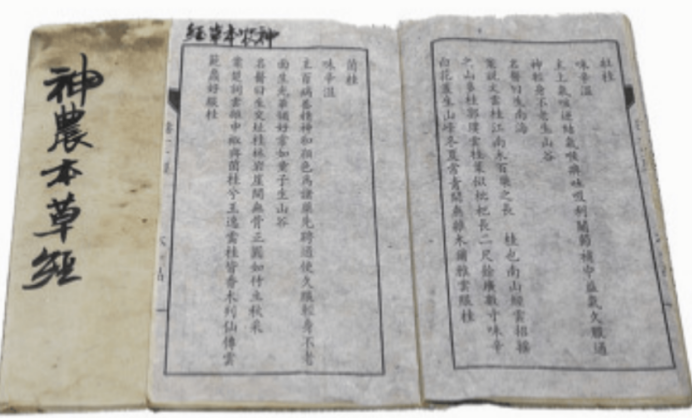 神農本草經
神农本草經
牡桂
味辛溫
主上氣咳逆結氣喉痹吐吸利關節補中益氣久服通
神輕身不老生山谷
名醫曰生南海
案說文雲桂江南木百藥之長 桂也南山經雲招搖
之山多桂郭璞雲桂葉似枇杷長二尺餘廣數寸味辛
白花叢生山峰冬夏常青間無雜木爾雅雲梫桂
菌桂
味辛溫
主百病養精神和顏色為諸藥先聘通使久服輕身不老
面生光華媚好常如童子生山谷
名醫曰生交址桂林岩崖間無骨正圓如竹立秋采
案楚詞雲雜申椒與菌桂兮王逸雲桂皆香木列仙傳雲
範蠡好服桂